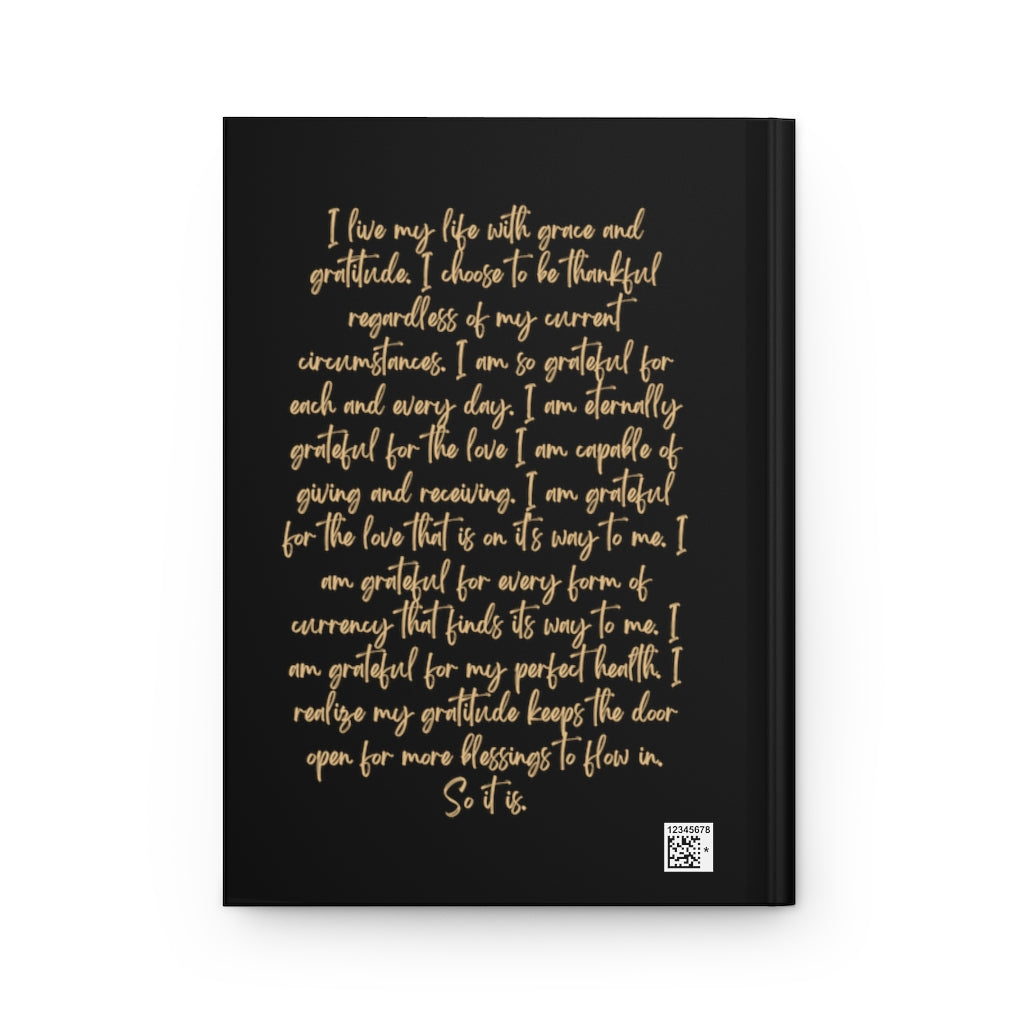 I live my life with grace and
gratitude. I choose to be thankful
regardless of my current
circumstances. I am so grateful for
each and every day. I am eternally
grateful for the love I am capable of
giving and receiving. I am grateful
for the love that is on it's way to me. I
am grateful for every form of
currency that finds its way to me. I
am grateful for my perfect health. I
realize my gratitude keeps the door
open for more blessings to flow in.
So it is.
12345678
*